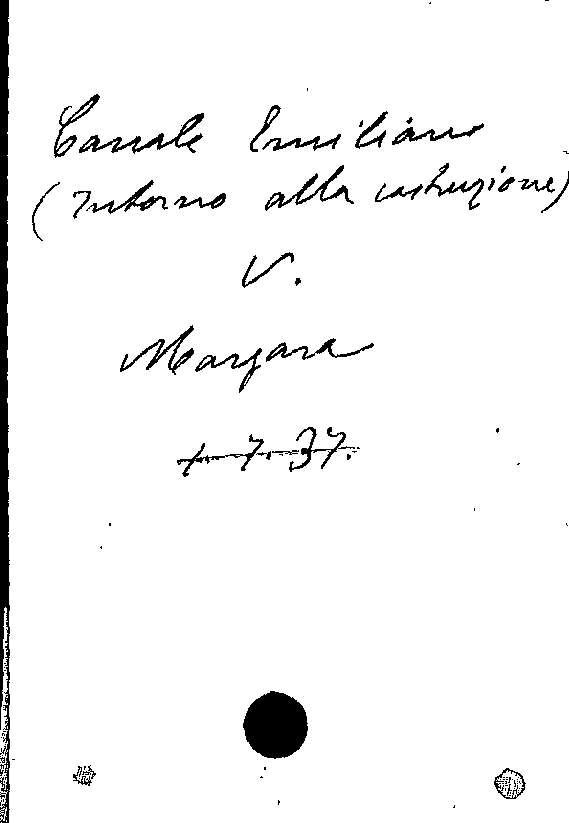 Canale Emiliano
(Intorno alla costruzione)
V.
Margara
+ 7. 37.